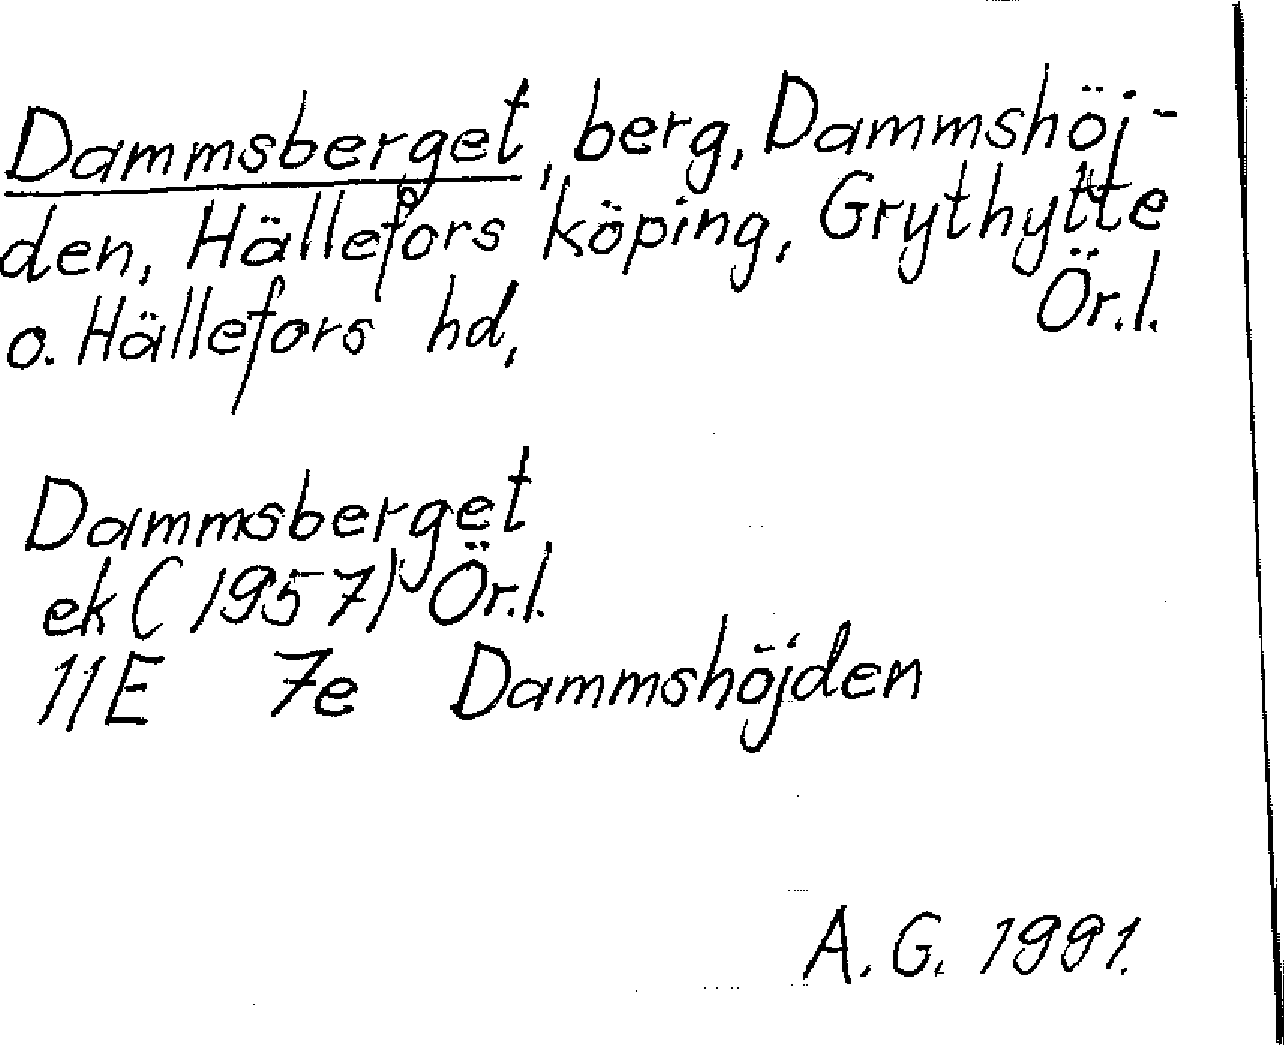 Dammsberget, berg, Dammshöj-
den, Hällefors köping, Grythytte
o. Hällefors hd, Ör.l.
Dammsberget
ek (1957) Ör.l.
11E 7e Dammshöjden
A.G. 1991.